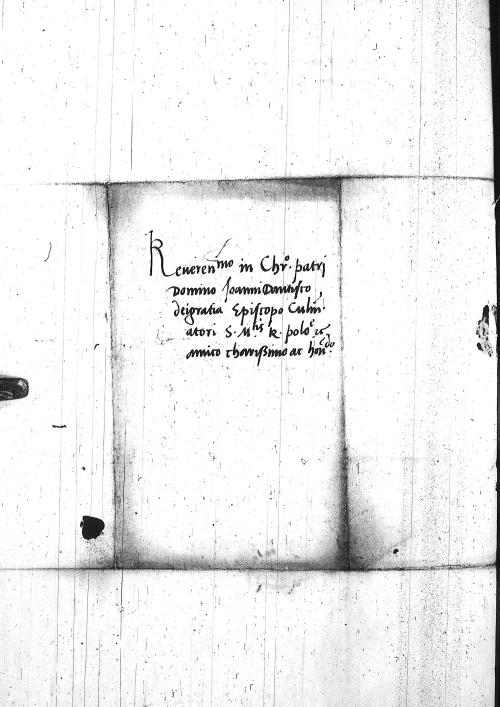 Reveren^mo in Chr^o. patri
Domino Joanni Dantisco
dei gratia Episcopo Culm̃.
atori S. M^tis R. polo^e &c
amico charissimo ac hon^do.